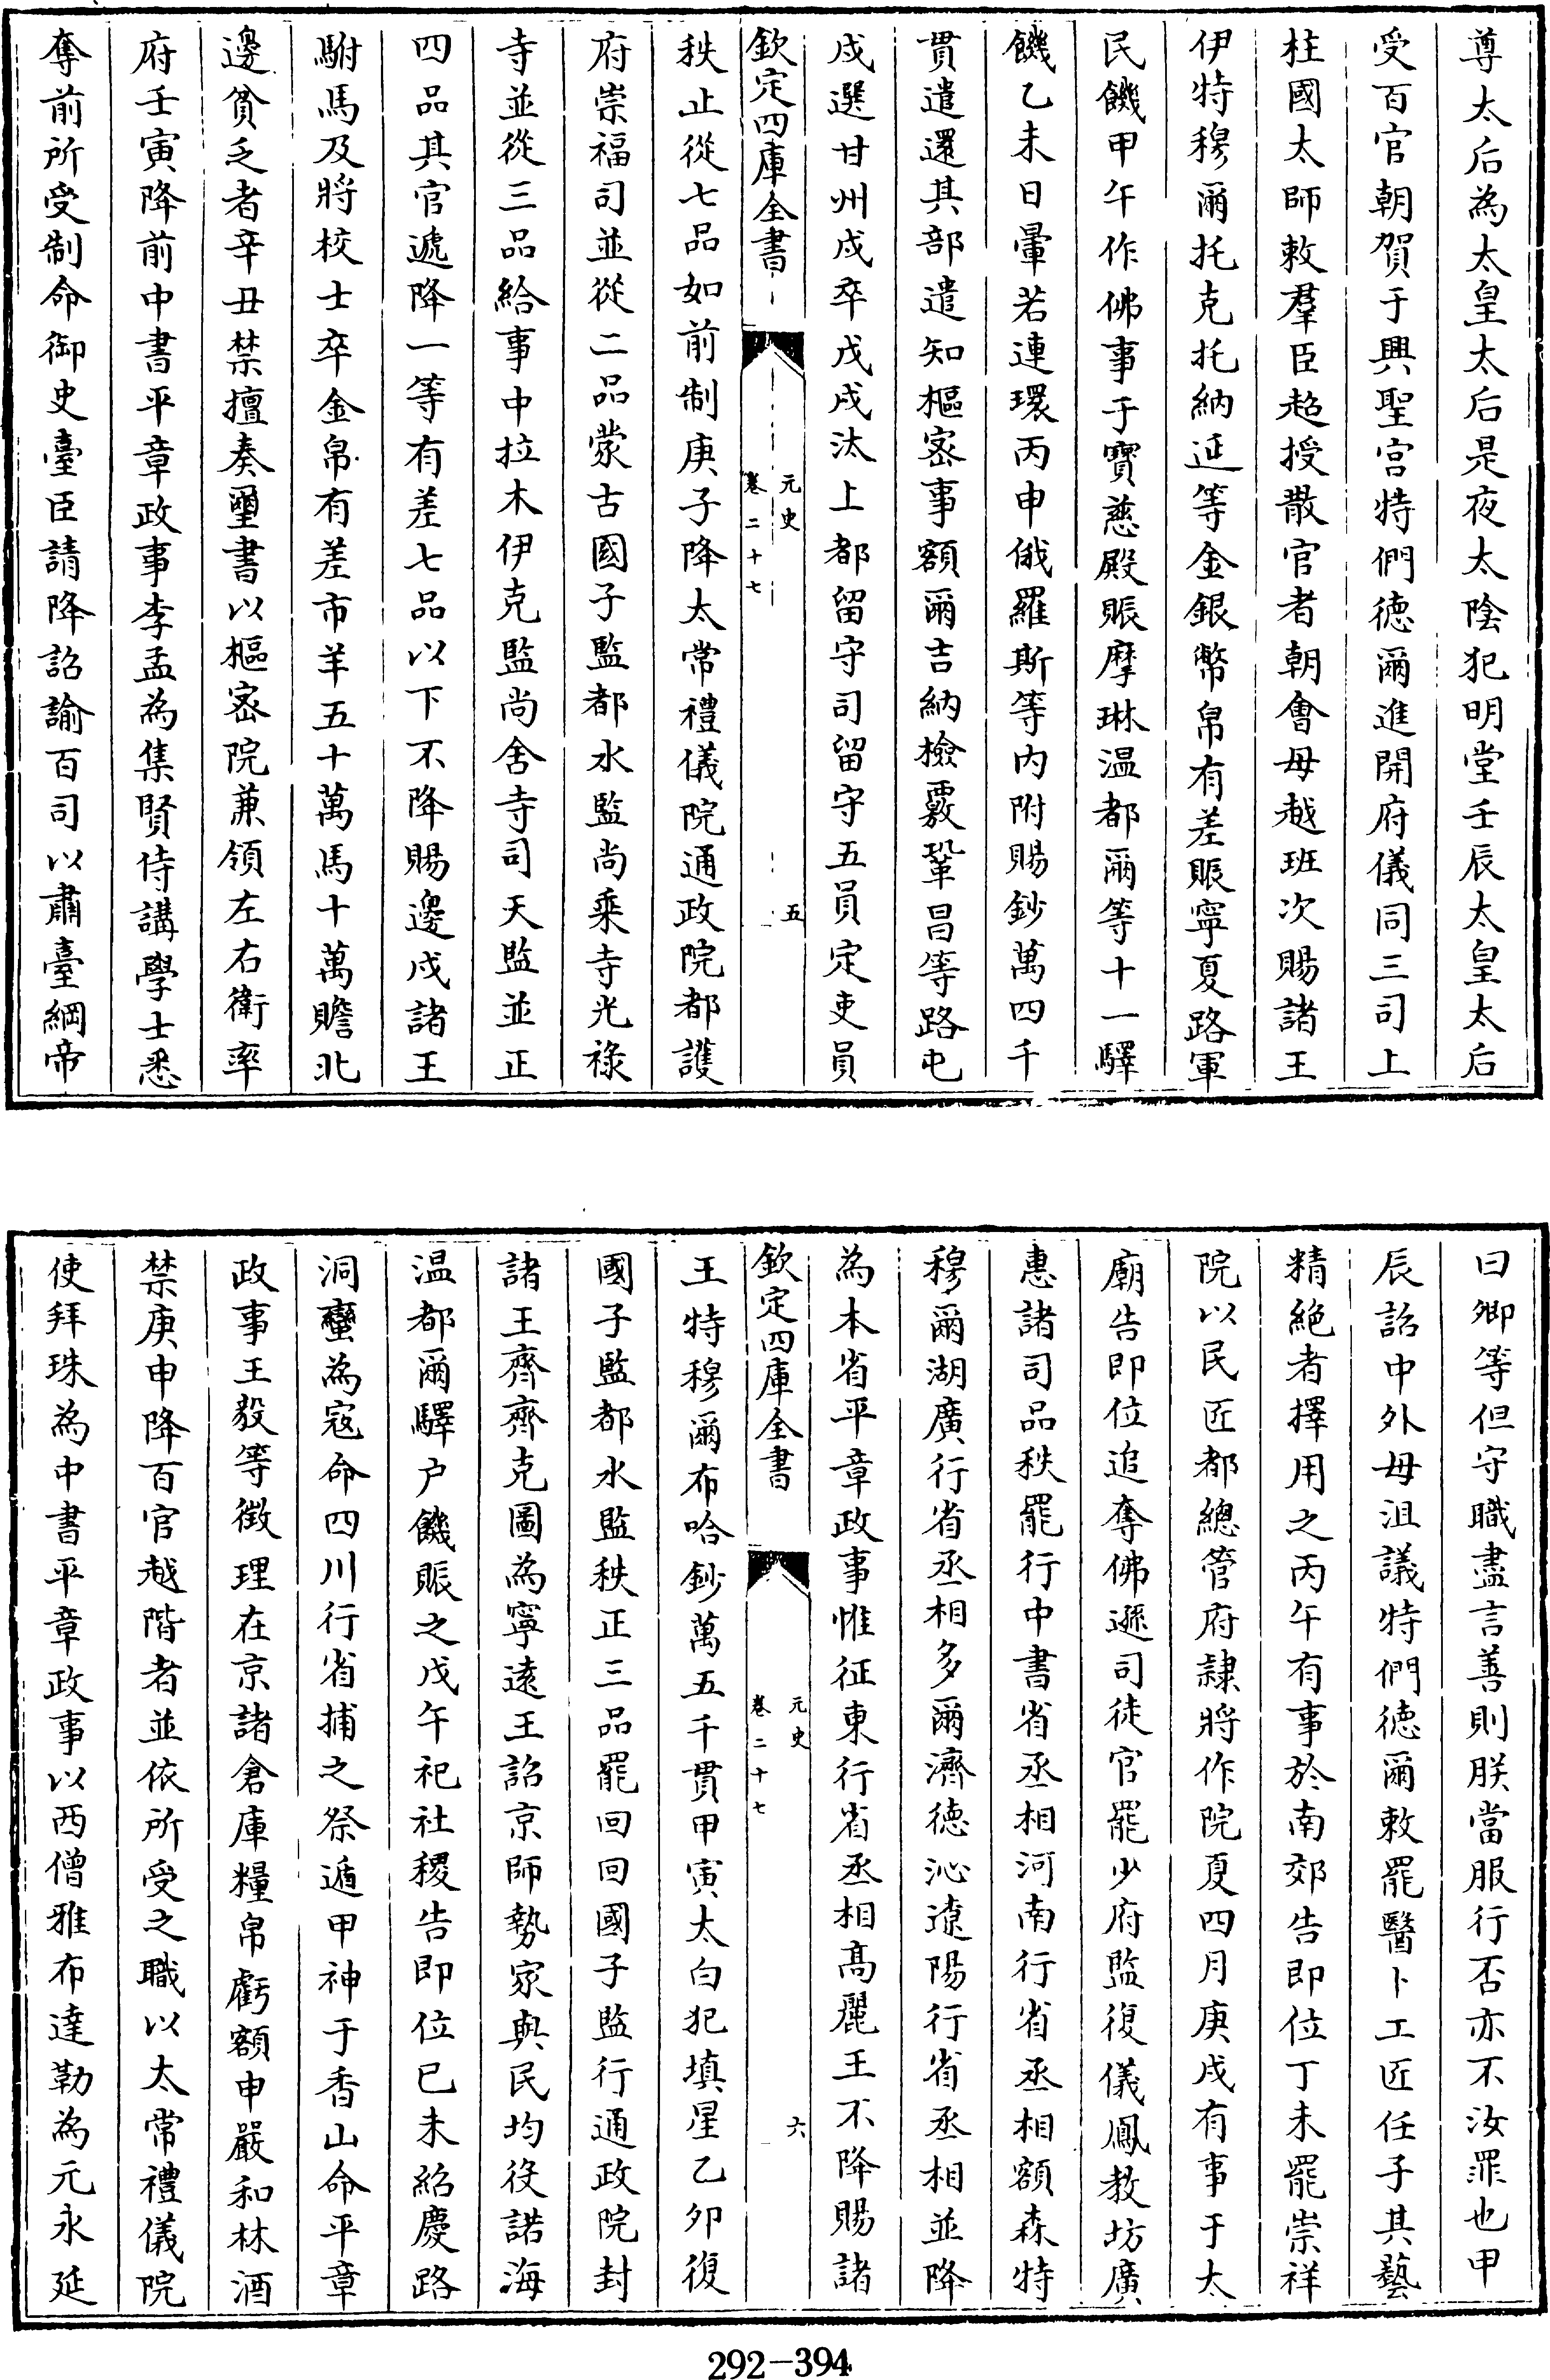 尊太后為太皇太后是夜太陰犯明堂壬辰太皇太后
受百官朝賀于興聖宮特們德爾進開府儀同三司上
柱國太師敕羣臣超授散官者朝會毋越班次賜諸王
伊特穆爾托克托納延等金銀幣帛有差賑寧夏路軍
民饑甲午作佛事于寶慈殿賑摩琳温都爾等十一驛
饑乙未日暈若連環丙申俄羅斯等內附賜鈔萬四千
貫遣還其部遣知樞密事額爾吉納檢覈鞏昌等路屯
戍選甘州戍卒戊戌汰上都留守司留守五員定吏員
欽定四庫全書
元史
卷二十七
五
秩止從七品如前制庚子降太常禮儀院通政院都護
府崇福司並從二品蒙古國子監都水監尚乘寺光祿
寺並從三品給事中拉木伊克監尚舍寺司天監並正
四品其官遞降一等有差七品以下不降賜邊戍諸王
駙馬及將校士卒金帛有差市羊五十萬馬十萬贍北
邊貧乏者辛丑禁擅奏璽書以樞密院兼領左右衛率
府壬寅降前中書平章政事李孟為集賢侍講學士悉
奪前所受制命御史臺臣請降詔諭百司以肅臺綱帝
曰卿等但守職盡言善則朕當服行否亦不汝罪也甲
辰詔中外毋沮議特們德爾敕罷醫卜工匠任子其藝
精絕者擇用之丙午有事於南郊告即位丁未罷崇祥
院以民匠都總管府隷將作院夏四月庚戌有事于太
廟告即位追奪佛遜司徒官罷少府監復儀鳳教坊廣
惠諸司品秩罷行中書省丞相河南行省丞相額森特
穆爾湖廣行省丞相多爾濟德沁遼陽行省丞相並降
為本省平章政事惟征東行省丞相髙麗王不降賜諸
欽定四庫全書
元史
卷二十七
六
王特穆爾布哈鈔萬五千貫甲寅太白犯填星乙卯復
國子監都水監秩正三品罷回回國子監行通政院封
諸王齊齊克圖為寧遠王詔京師勢家與民均役諾海
温都爾驛户饑賑之戊午祀社稷告即位已未紹慶路
洞蠻為寇命四川行省捕之祭遁甲神于香山命平章
政事王毅等徵理在京諸倉庫糧帛虧額申嚴和林酒
禁庚申降百官越階者並依所受之職以太常禮儀院
使拜珠為中書平章政事以西僧雅布達勒為元永延
292-394